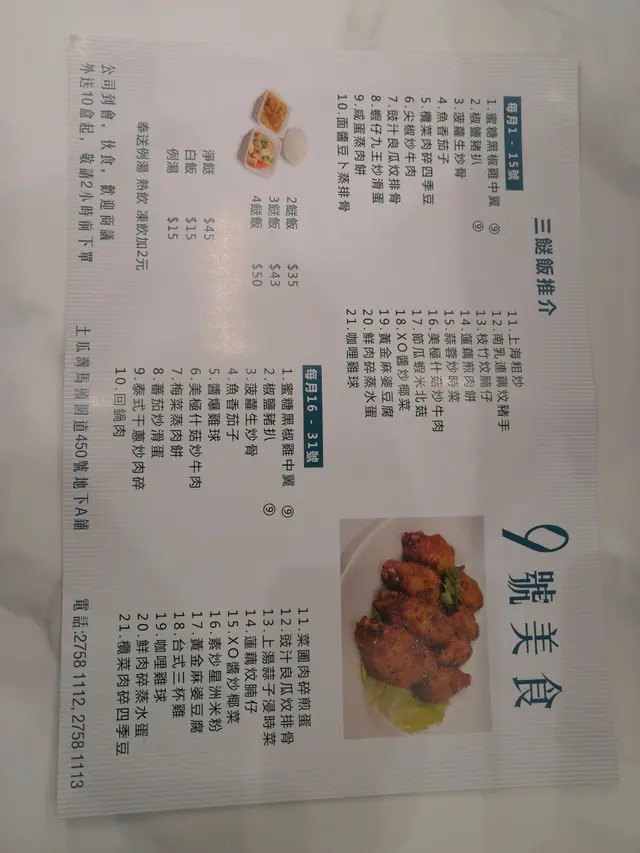 9號美食
三餸飯推介
每月1 - 15號
1.蜜糖黑椒雞中翼 ⑨
2.椒鹽豬扒 ⑨
3.菠蘿生炒骨
4.魚香茄子
5.欖菜肉碎四季豆
6.尖椒炒牛肉
7.豉汁良瓜炆排骨
8.蝦仔九王炒滑蛋
9.咸蛋蒸肉餅
10.面醬豆卜蒸排骨
11.上海粗炒
12.南乳連藕炆豬手
13.枝竹炆腩仔
14.蓮藕煎肉餅
15.蒜蓉炒時菜
16.美極什菇炒牛肉
17.節瓜蝦米北菇
18.XO醬炒椰菜
19.黃金麻婆豆腐
20.鮮肉碎蒸水蛋
21.咖哩雞球
2餸飯 $35
3餸飯 $43
4餸飯 $50
淨餸 $45
白飯 $15
例湯 $15
奉送例湯 熱飲 凍飲加2元
每月16 - 31號
1.蜜糖黑椒雞中翼 ⑨
2.椒鹽豬扒 ⑨
3.菠蘿生炒骨
4.魚香茄子
5.醬爆雞球
6.美極什菇炒牛肉
7.梅菜蒸肉餅
8.番茄炒滑蛋
9.泰式干蔥炒肉碎
10.回鍋肉
11.菜圃肉碎煎蛋
12.豉汁良瓜炆排骨
13.上湯蒜子浸時菜
14.蓮藕炆腩仔
15.XO醬炒椰菜
16.素炒星洲米粉
17.黃金麻婆豆腐
18.台式三杯雞
19.咖哩雞球
20.鮮肉碎蒸水蛋
21.欖菜肉碎四季豆
公司到會，伙食，歡迎商議
外送10盒起，敬請2小時前下單
土瓜灣馬頭圍道450號地下A鋪
電話:2758 1112, 2758 1113